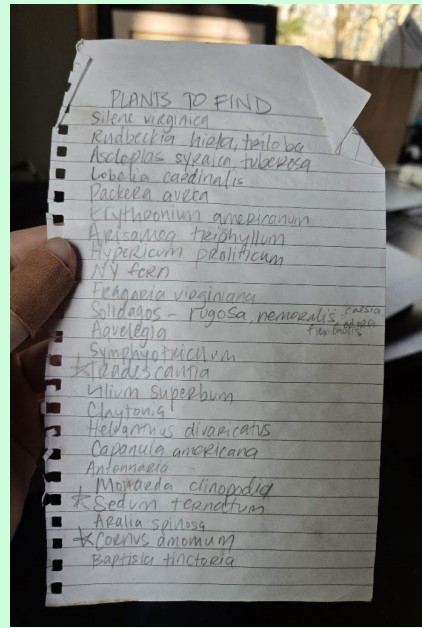 PLANTS TO FIND
Silene virginica
Rudbeckia hirta, triloba
Asclepias syraica tuberosa
Lobelia cardinalis
Packera aurea
Erythronium americanum
Arisamoa triphyllum
Hypericum prolificum
NY fern
Fragaria virginiana
Solidagos - rugosa, nemoralis, caesia
flexicaulis
Aquelegia
Symphyotrichum
Tradescantia
Lilium superbum
Claytonia
Helianthus divaricatus
Capanula americana
Antennaria
Monarda clinopodia
Sedum ternatum
Aralia spinosa
Cornus amomum
Baptisia tinctoria